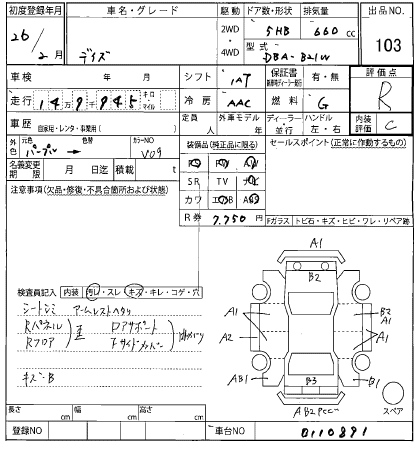 初度登録年月 車名・グレード 駆動 ドア数・形状 排気量 出品NO.
26/2月 デイズ 2WD・4WD 5HB 660cc 103
型式 DBA-B21W
車検 年 月 シフト IAT 保証書 有・無 評価点 R
走行 149,945 キロ マイル 冷房 AAC 燃料 G
車歴 自家用・レンタ・事業用( ) 定員 人 外車モデル 年 ディーラー・並行 ハンドル 左・右 内装評価 C
外色 元色 パープル → 色替 カラーNO V09
装備品(純正品に限る) セールスポイント(正常に動作するもの)
名義変更期限 月 日迄 積載 t
PS PW
注意事項(欠品・修復・不具合箇所および状態)
SR TV ナビ
カワ エBラ ABS
R券 7,750円
Fガラス トビ石・キズ・ヒビ・ワレ・リペア跡
A1
B2
検査員記入 内装 汚レ・スレ キズ・キレ・コゲ・穴
シートシミ アームレストヘタリ
Rパネル Dアサポート
Rフロア Fサイドメンバー
キズ・B
A1 B2 A1
A2 A1
AB1 B3 B1
スペア
長さ cm 幅 cm 高さ cm
登録NO 車台NO 0110891